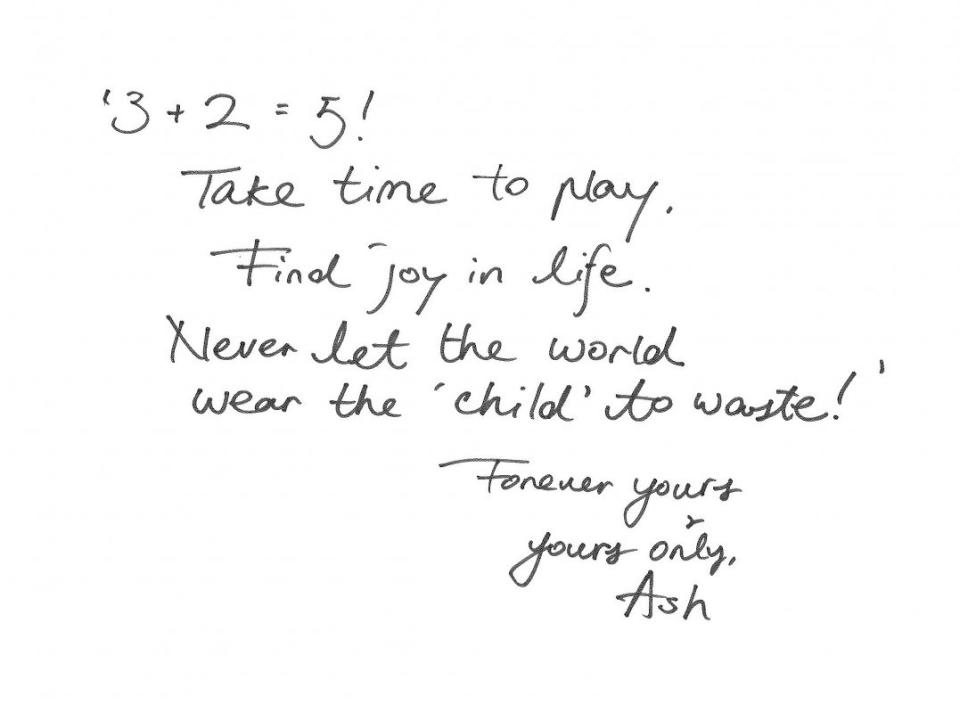 '3 + 2 = 5!
Take time to play.
Find joy in life.
Never let the world
wear the 'child' to waste!'
Forever yours
yours only,
Ash